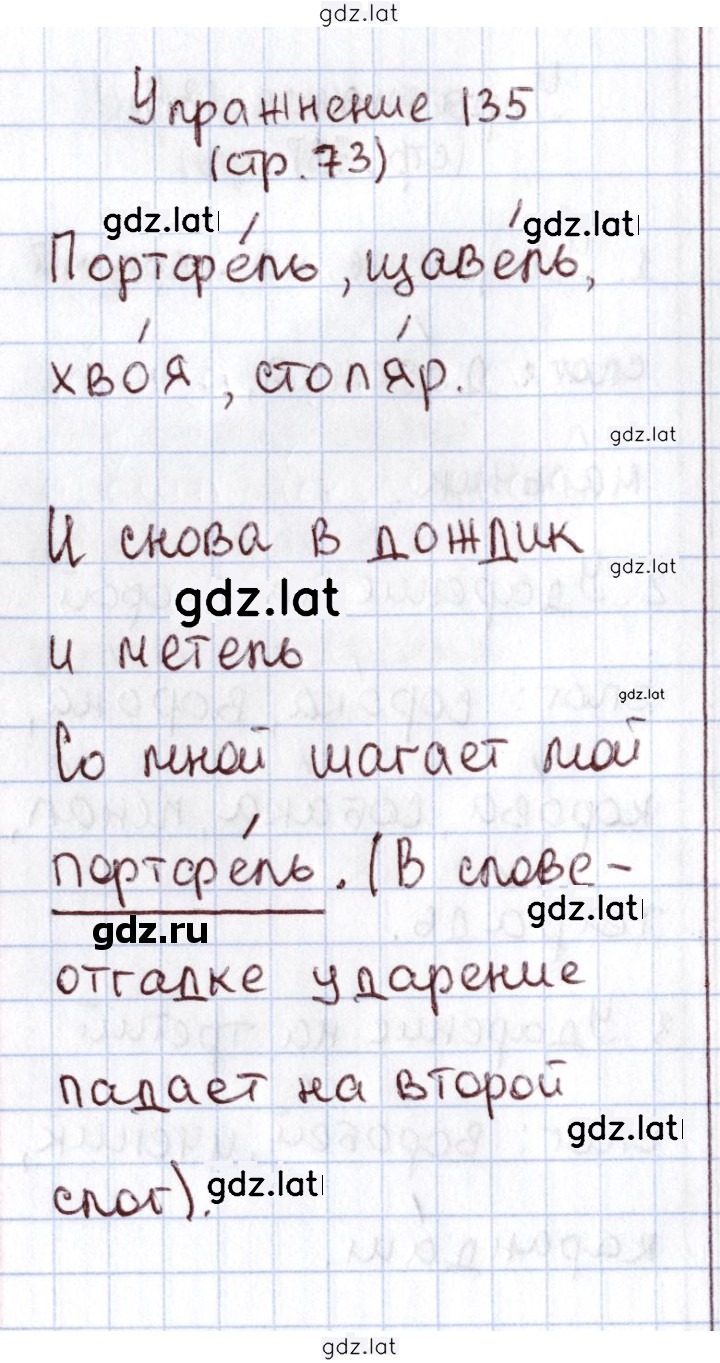 gdz.lat
gdz.lat
Упражнение 135
(стр. 73)
gdz.lat gdz.lat
Портфе́ль, щаве́ль,
хво́я, столя́р.
gdz.lat
И снова в дождик
gdz.lat
gdz.lat
и метель
gdz.lat
Со мной шагает мой
портфе́ль. (В слове-
gdz.lat
gdz.ru
отгадке ударение
падает на второй
gdz.lat
слог).
gdz.lat
gdz.lat